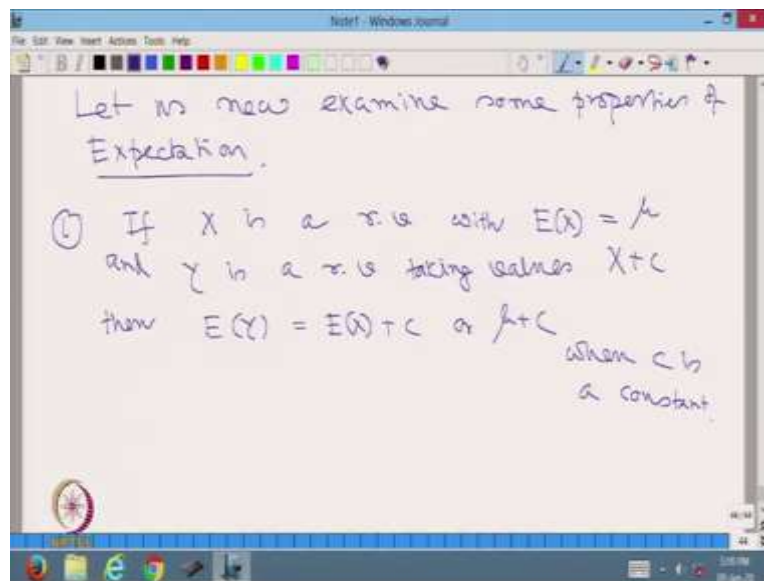 Note1 - Windows Journal
File Edit View Insert Actions Tools Help
Let us now examine some properties of
Expectation.
① If X is a r.v with E(X) = μ
and Y is a r.v taking values X+c
then E(Y) = E(X) + c or μ+c
when c is
a constant.
NPTEL